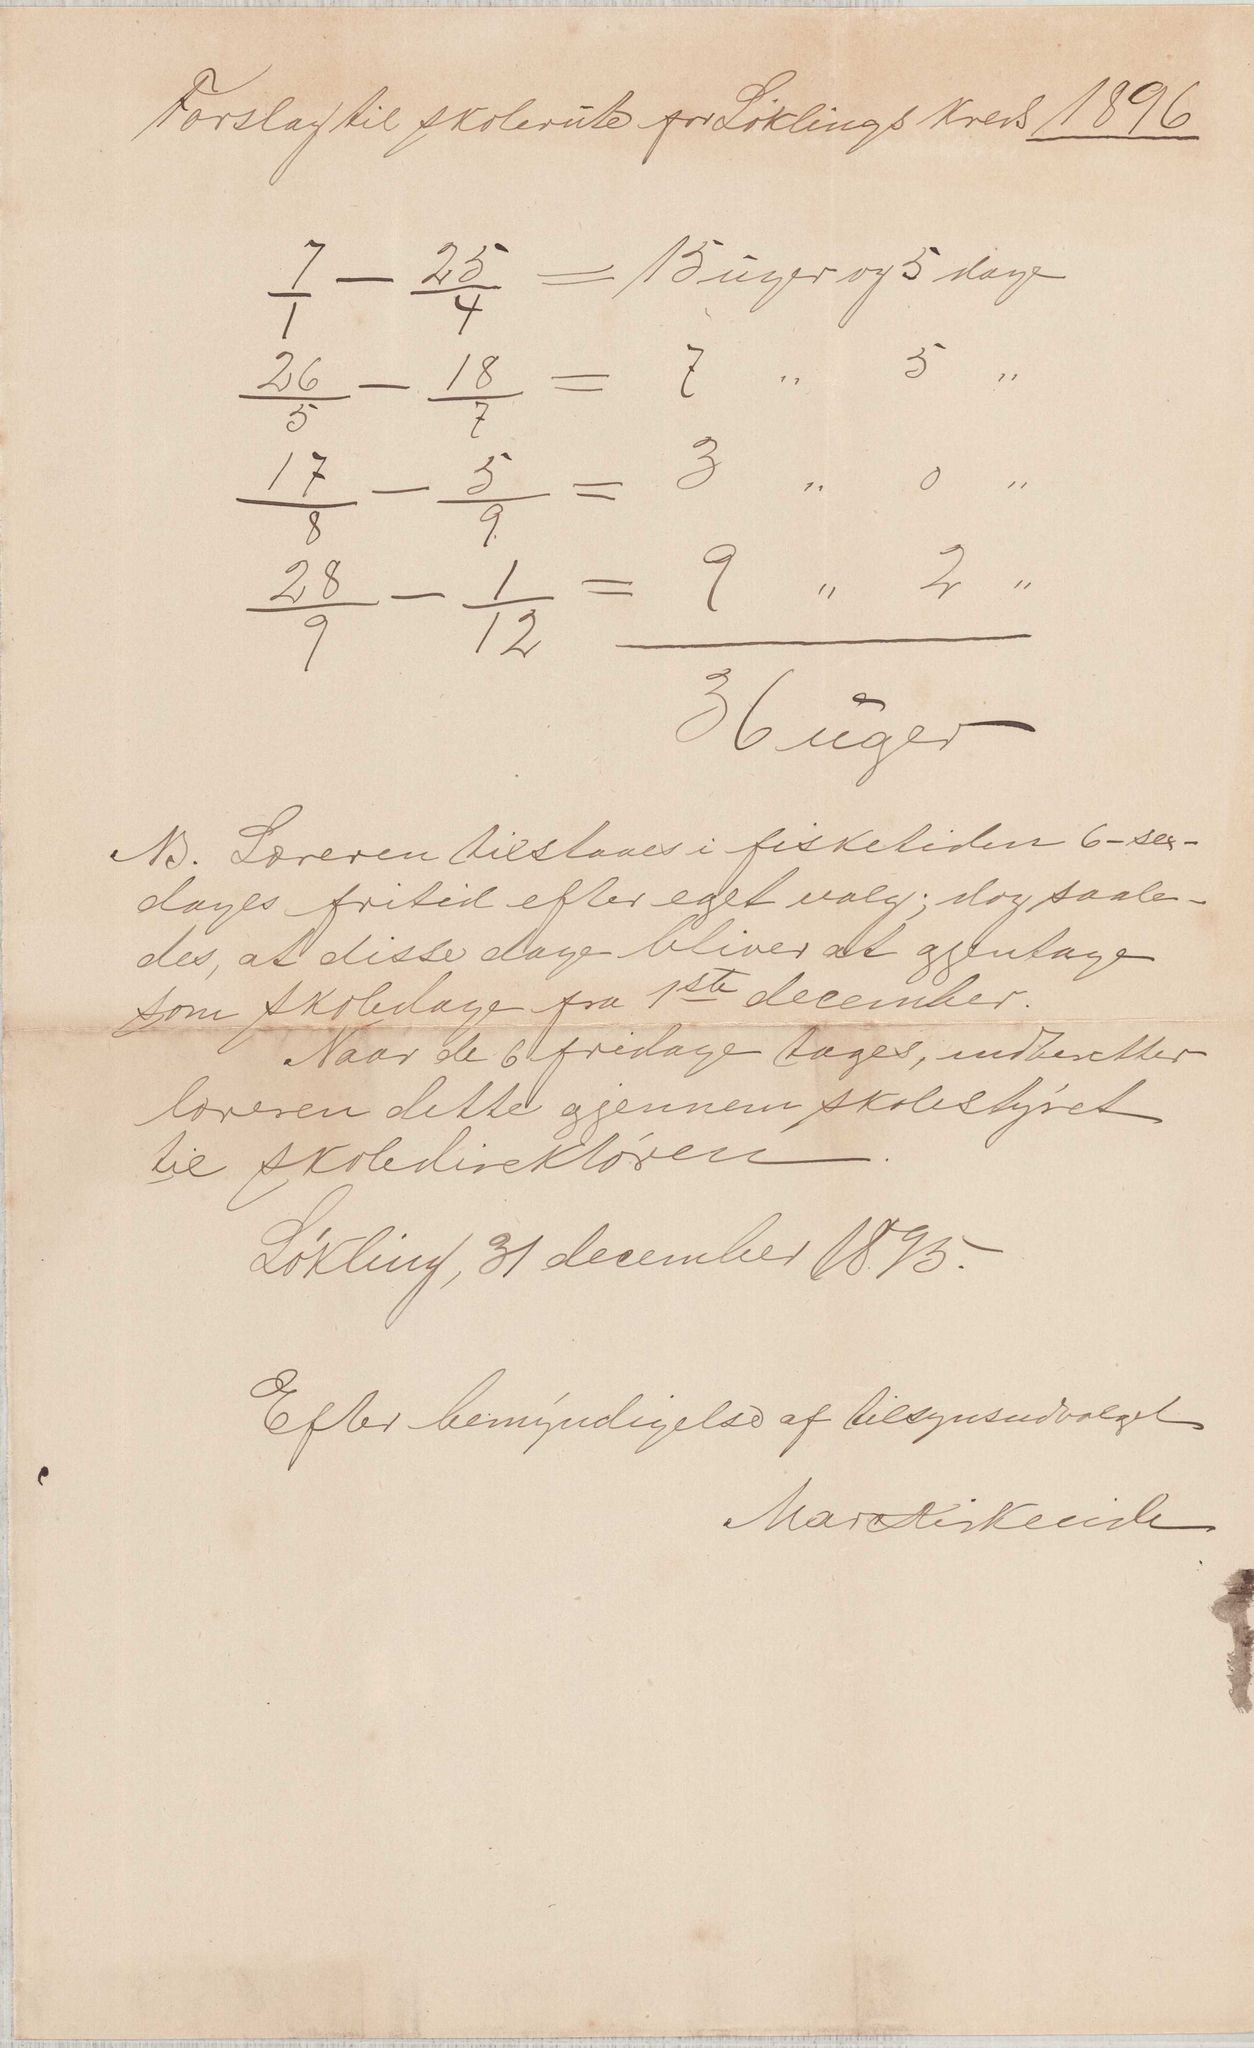 Forslag til skolerute for Löklings Kreds 1896
7/1 — 25/4 = 15 uger og 5 dage
26/5 — 18/7 = 7 " 5 "
17/8 — 5/9 = 3 " 0 "
28/9 — 1/12 = 9 " 2 "
36 uger
NB. Læreren tilstaaes i fisketiden 6-sex-
dages fritid efter eget valg; dog saale-
des, at disse dage bliver at gjentage
som skoledage fra 1ste december.
Naar de 6 fridage tages, indberetter
læreren dette gjennem skolestyret
til skoledirektören.
Lökling, 31 december 1895.
Efter bemyndigelse af tilsynsudvalget